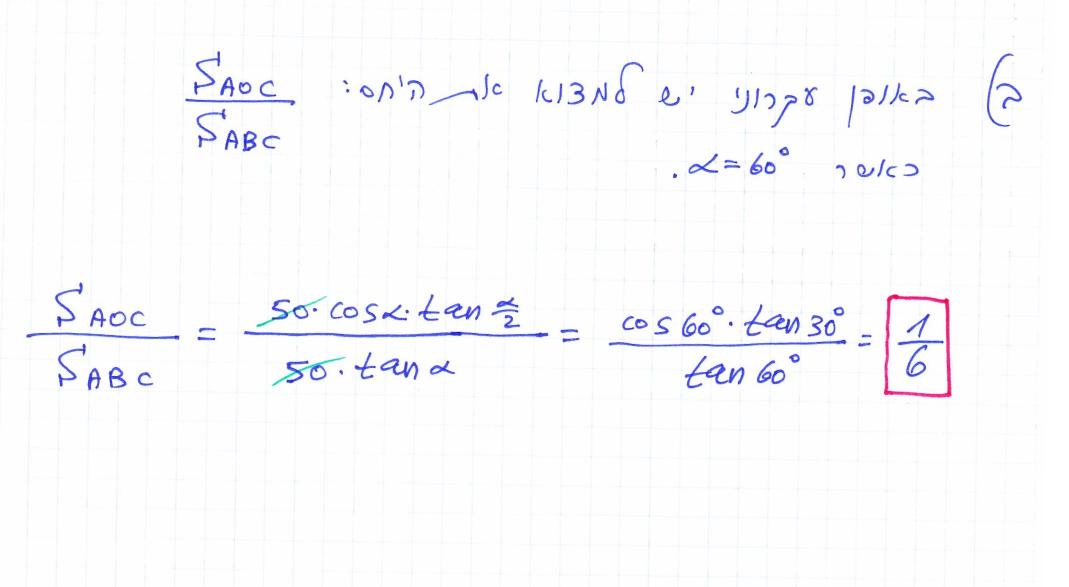 ב) באופן עקרוני יש למצוא את היחס: S_AOC / S_ABC
כאשר α = 60° .
S_AOC / S_ABC = 50·cosα·tan α/2 / 50·tanα = cos60°·tan30° / tan60° = 1/6